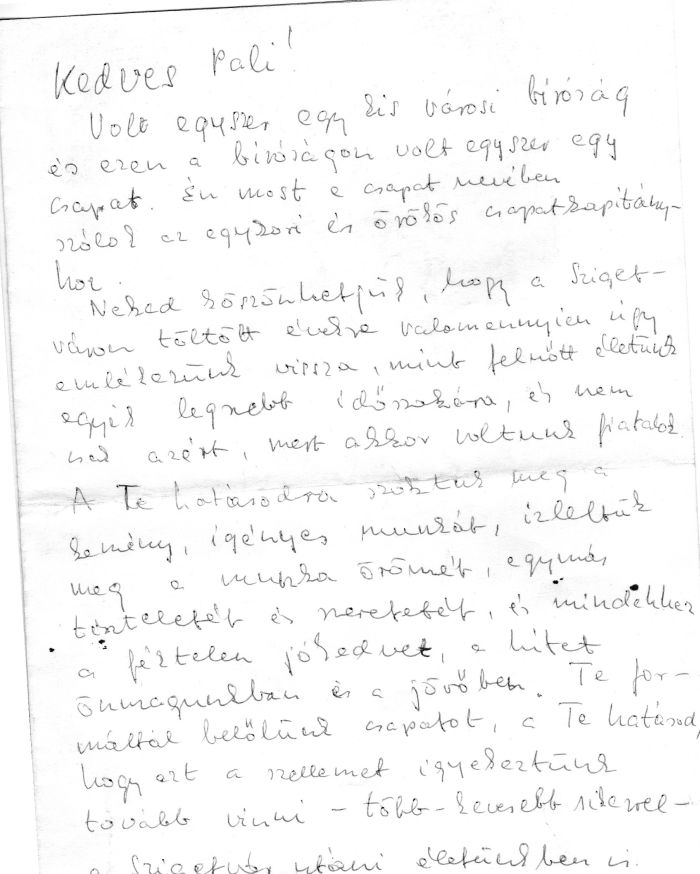 Kedves Pali!
Volt egyszer egy kis városi biróság
és ezen a biróságon volt egyszer egy
csapat. Én most e csapat nevében
szólok az egykori és örökös csapatkapitány-
hoz.
Neked köszönhetjük, hogy a Sziget-
váron töltött évekre valamennyien úgy
emlékezünk vissza, mint felnőtt életünk
egyik legszebb időszakára, és nem
csak azért, mert akkor voltunk fiatalok.
A Te hatásodra szoktuk meg a
kemény, igényes munkát, izleltük
meg a munka örömét, egymás
tiszteletét és szeretetét, és mindehhez
a féktelen jókedvet, a hitet
önmagunkban és a jövőben. Te for-
máltál belőlünk csapatot, a Te hatásod,
hogy ezt a szellemet igyekeztünk
tovább vinni – több-kevesebb sikerrel –
a Szigetvár utáni életünkben is.